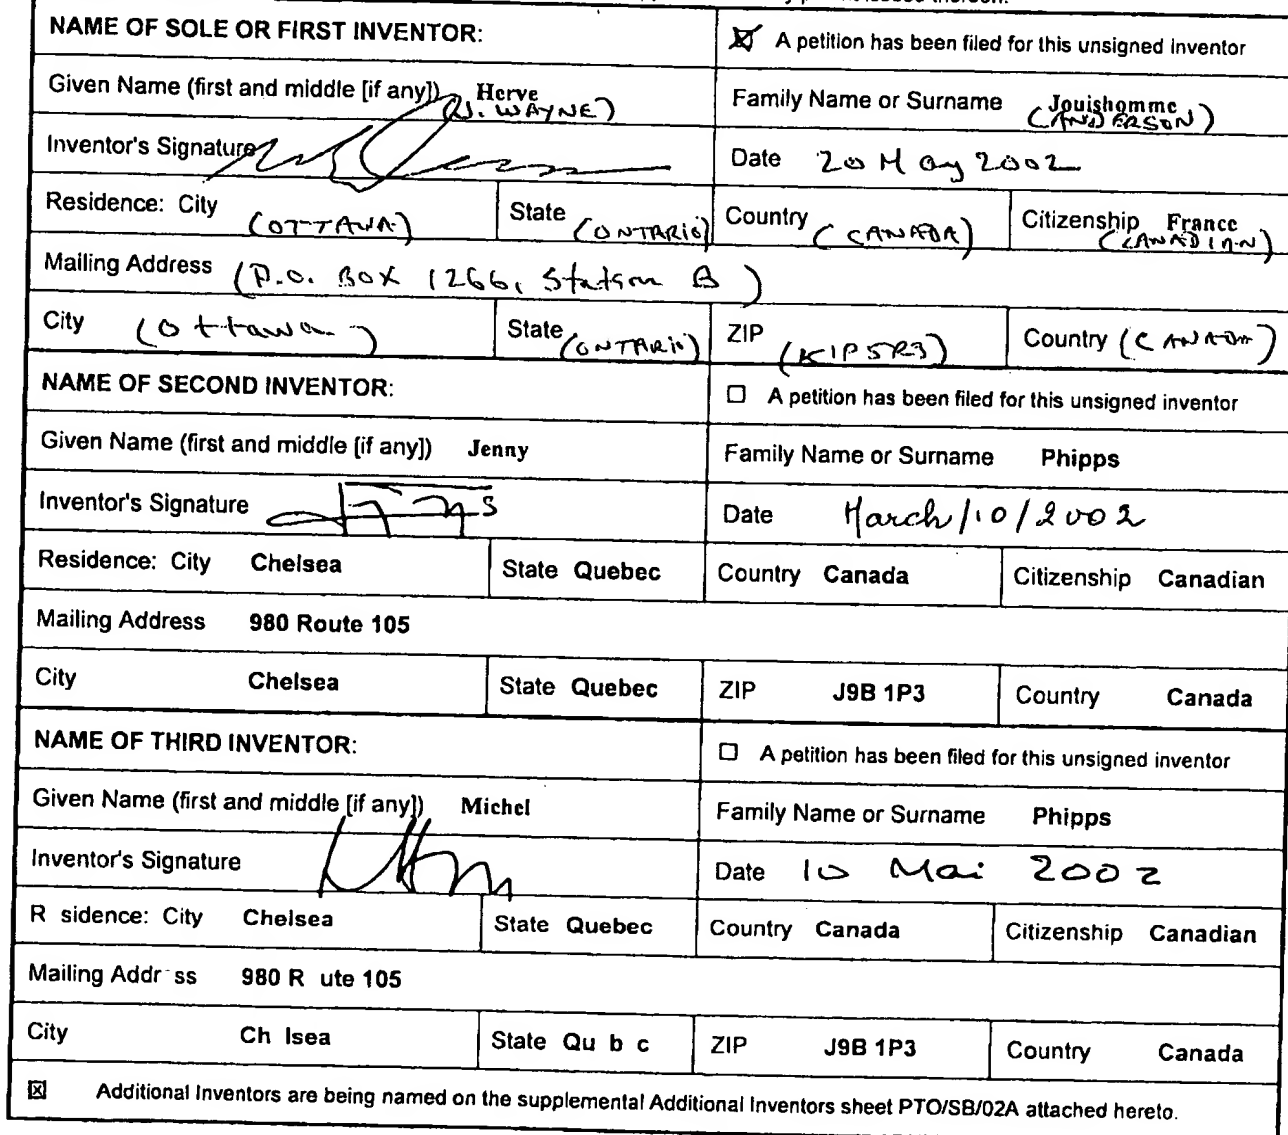 NAME OF SOLE OR FIRST INVENTOR: A petition has been filed for this unsigned inventor
Given Name (first and middle [if any]) Herve Family Name or Surname Jouishomme
(J. WAYNE) (ANDERSON)
Inventor's Signature Date 20 May 2002
Residence: City (OTTAWA) State (ONTARIO) Country (CANADA) Citizenship France
(CANADIAN)
Mailing Address (P.O. BOX 1266, Station B)
City (Ottawa) State (ONTARIO) ZIP (K1P5R3) Country (CANADA)
NAME OF SECOND INVENTOR: A petition has been filed for this unsigned inventor
Given Name (first and middle [if any]) Jenny Family Name or Surname Phipps
Inventor's Signature Date March/10/2002
Residence: City Chelsea State Quebec Country Canada Citizenship Canadian
Mailing Address 980 Route 105
City Chelsea State Quebec ZIP J9B 1P3 Country Canada
NAME OF THIRD INVENTOR: A petition has been filed for this unsigned inventor
Given Name (first and middle [if any]) Michel Family Name or Surname Phipps
Inventor's Signature Date 10 Mai 2002
R sidence: City Chelsea State Quebec Country Canada Citizenship Canadian
Mailing Addr ss 980 R ute 105
City Ch lsea State Qu b c ZIP J9B 1P3 Country Canada
Additional Inventors are being named on the supplemental Additional Inventors sheet PTO/SB/02A attached hereto.